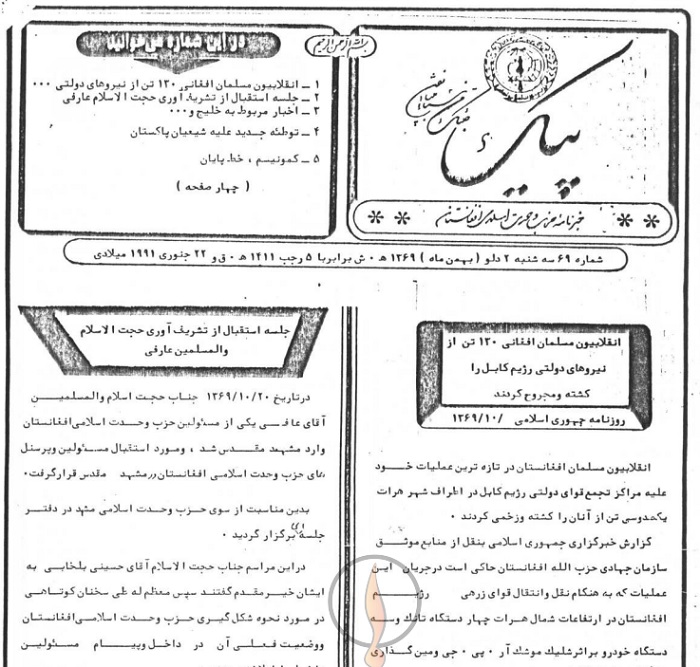 بسم الله الرحمن الرحیم
پیک
خبرنامه حزب وحدت اسلامی افغانستان
در این شماره می خوانید
۱ ــ انقلابیون مسلمان افغانی ۱۳۰ تن از نیروهای دولتی ۰۰۰
۲ ــ جلسه استقبال از تشریف آوری حجت الاسلام عارفی
۳ ــ اخبار مربوط به خلیج و ۰۰۰
۴ ــ توطئه جدید علیه شیعیان پاکستان
۵ ــ کمونیسم ، خط پایان
( چهار صفحه )
شماره ۶۹ سه شنبه ۲ دلو ( بهمن ماه ) ۱۳۶۹ ه ۰ ش برابر با ۵ رجب ۱۴۱۱ ه ۰ ق و ۲۲ جنوری ۱۹۹۱ میلادی
انقلابیون مسلمان افغانی ۱۳۰ تن از
نیروهای دولتی رژیم کابل را
کشته ومجروح کردند
روزنامه جمهوری اسلامی /۱۳۶۹/۱۰
انقلابیون مسلمان افغانستان در تازه ترین عملیات خود
علیه مراکز تجمع قوای دولتی رژیم کابل در اطراف شهر هرات
یکصدوسی تن از آنان را کشته وزخمی کردند ۰
گزارش خبرگزاری جمهوری اسلامی بنقل از منابع موثق
سازمان جهادی حزب الله افغانستان حاکی است درجریان این
عملیات که به هنگام نقل وانتقال قوای زرهی رژیم
افغانستان در ارتفاعات شمال هرات چهار دستگاه تانک وسه
دستگاه خودرو براثر شلیک موشک آر ۰ پی ۰ جی ومین گذاری
جلسه استقبال از تشریف آوری حجت الاسلام
والمسلمین عارفی
درتاریخ ۱۳۶۹/۱۰/۲۰ جناب حجت اسلام والمسلمین
آقای عارفی یکی از مسئولین حزب وحدت اسلامی افغانستان
وارد مشهد مقدس شد ، ومورد استقبال مسئولین وپرسنل
های حزب وحدت اسلامی افغانستان درمشهد مقدس قرارگرفت۰
بدین مناسبت از سوی حزب وحدت اسلامی مشهد در دفتر
جلسه ای برگزار گردید ۰
دراین مراسم جناب حجت الاسلام آقای حسینی بلخابی به
ایشان خیر مقدم گفتند سپس معظم له طی سخنان کوتاهی
در مورد نحوه شکل گیری حزب وحدت اسلامی افغانستان
ووضعیت فعلی آن در داخل وپیام مسئولین